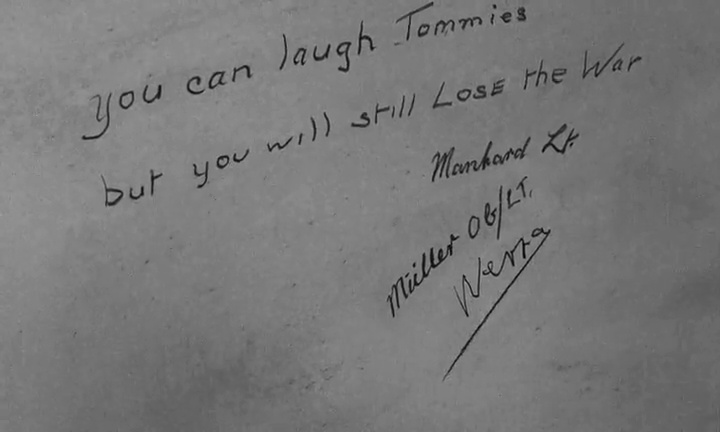 you can laugh Tommies
but you will still LOSE the War
Manhard Lt.
Müller Ob/LT.
Werra